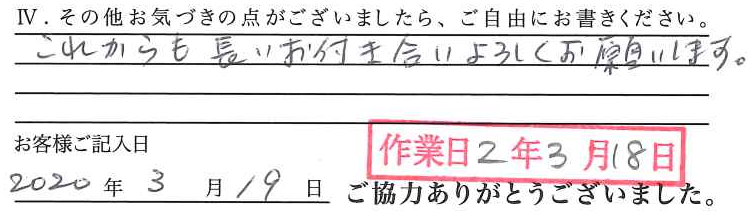 Ⅳ．その他お気づきの点がございましたら、ご自由にお書きください。
これからも長いお付き合いよろしくお願いします。
お客様ご記入日
作業日2年3月18日
2020年3月19日
ご協力ありがとうございました。